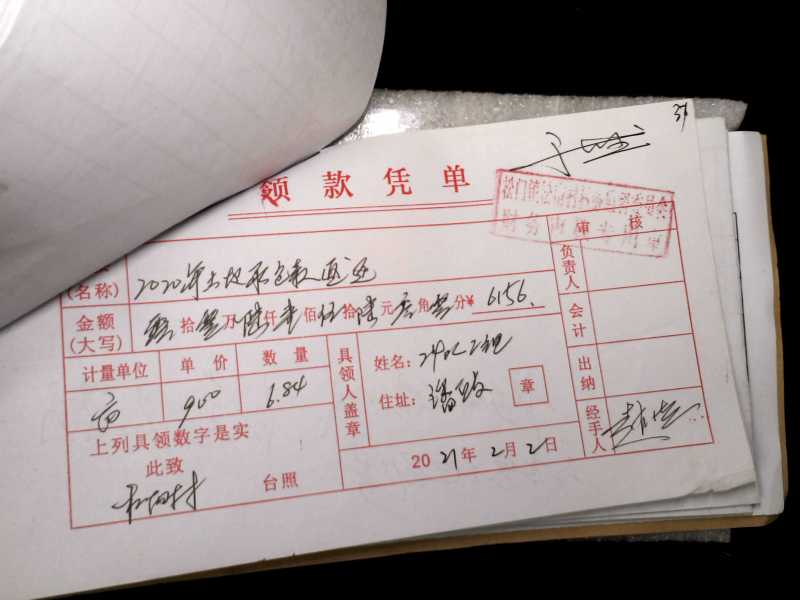 37
领款凭单
审核
(名称) 2020年土地承包款返还
金额(大写) 零拾零万陆仟壹佰伍拾陆元零角零分¥6156.
计量单位 单价 数量
亩 900 6.84
具领人盖章
姓名:
住址: 章
上列具领数字是实
此致
台照
2021年2月2日
负责人
会计
出纳
经手人